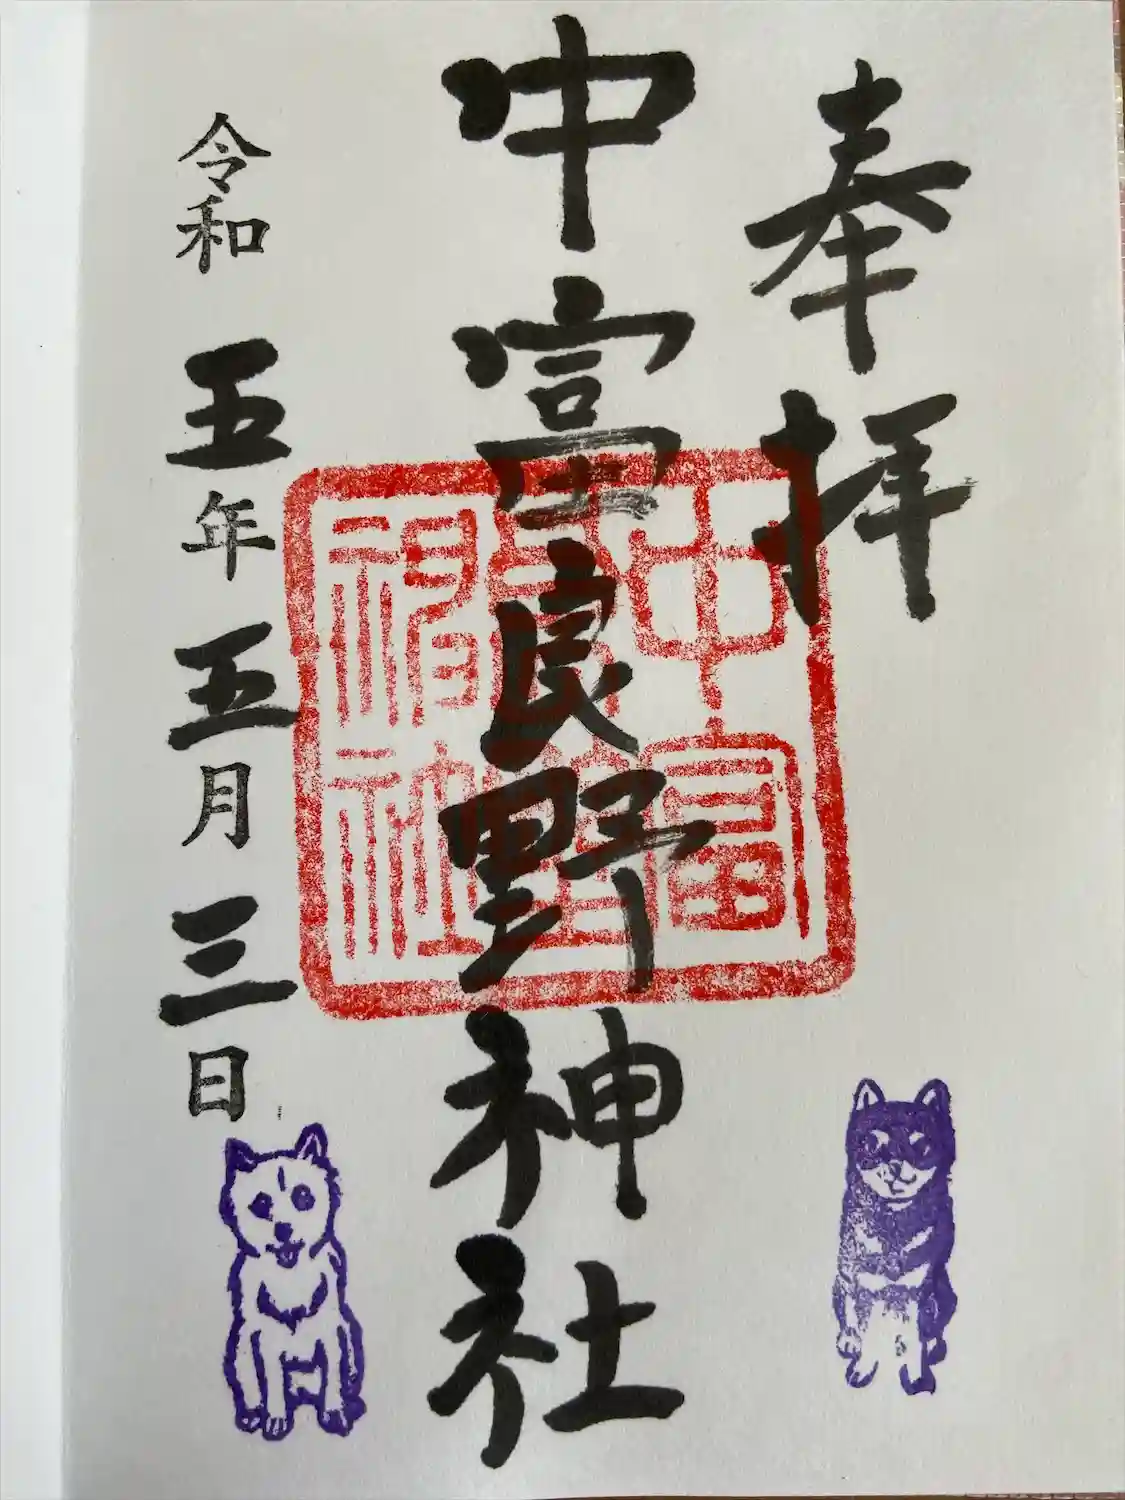 奉拝
中富良野神社
中富良野神社
令和五年五月三日